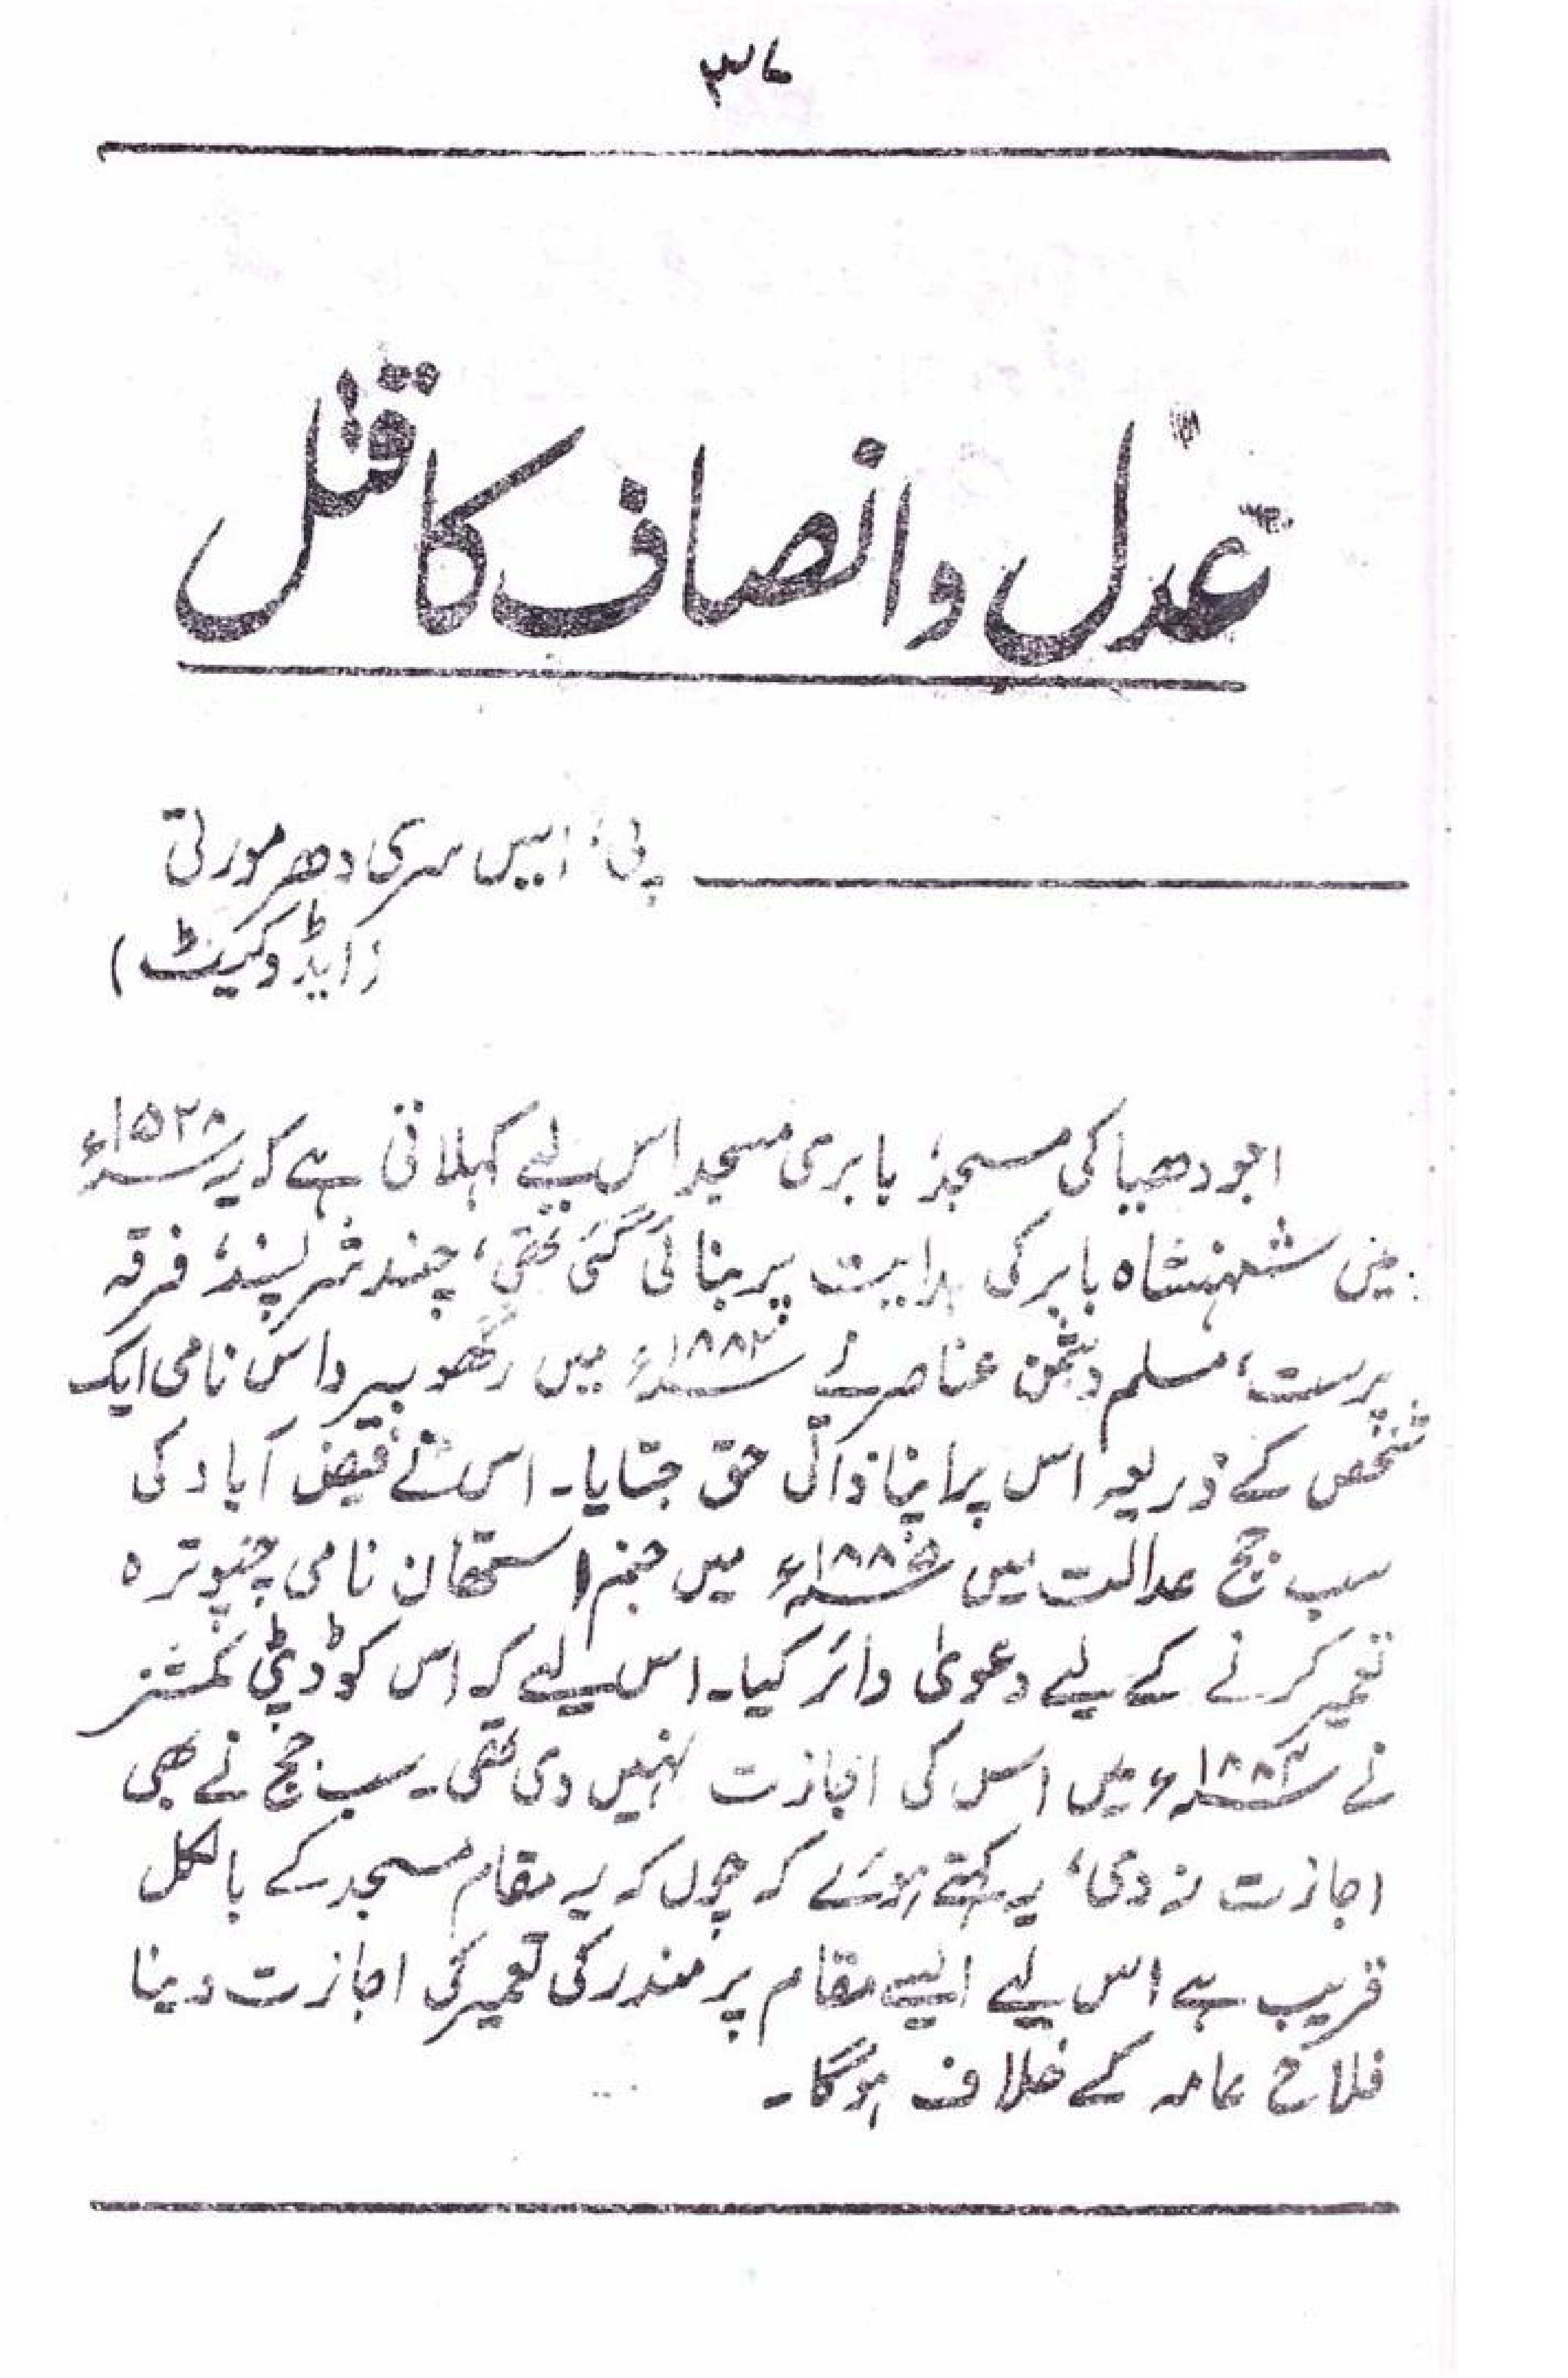 ۳۷
عدل و انصاف کا قتل
پی، ایس سری دھر مورتی
(ایڈوکیٹ)
اجودھیا کی مسجد، بابری مسجد اس لیے کہلاتی ہے کہ یہ ۱۵۲۸ء
میں شہنشاہ بابر کی ہدایت پر بنائی گئی تھی، چند شر پسند، فرقہ
پرست، مسلم دشمن عناصر نے ۱۸۸۳ء میں رگھو بیر داس نامی ایک
شخص کے ذریعہ اس پر اپنا حق جتایا۔ اس نے فیض آباد کی
سب جج عدالت میں ۱۸۸۵ء میں جنم استھان نامی چبوترہ
تعمیر کرنے کے لیے دعویٰ دائر کیا۔ اس لیے کہ اس کو ڈپٹی کمشنر
نے ۱۸۸۳ء میں اس کی اجازت نہیں دی تھی۔ سب جج نے بھی
اجازت نہ دی، یہ کہتے ہوئے کہ چوں کہ یہ مقام مسجد کے بالکل
قریب ہے اس لیے ایسے مقام پر مندر کی تعمیر کی اجازت دینا
فلاح عامہ کے خلاف ہوگا۔